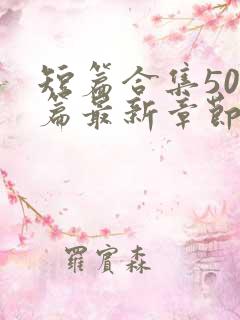 短篇合集50
篇最新章節
羅賓森